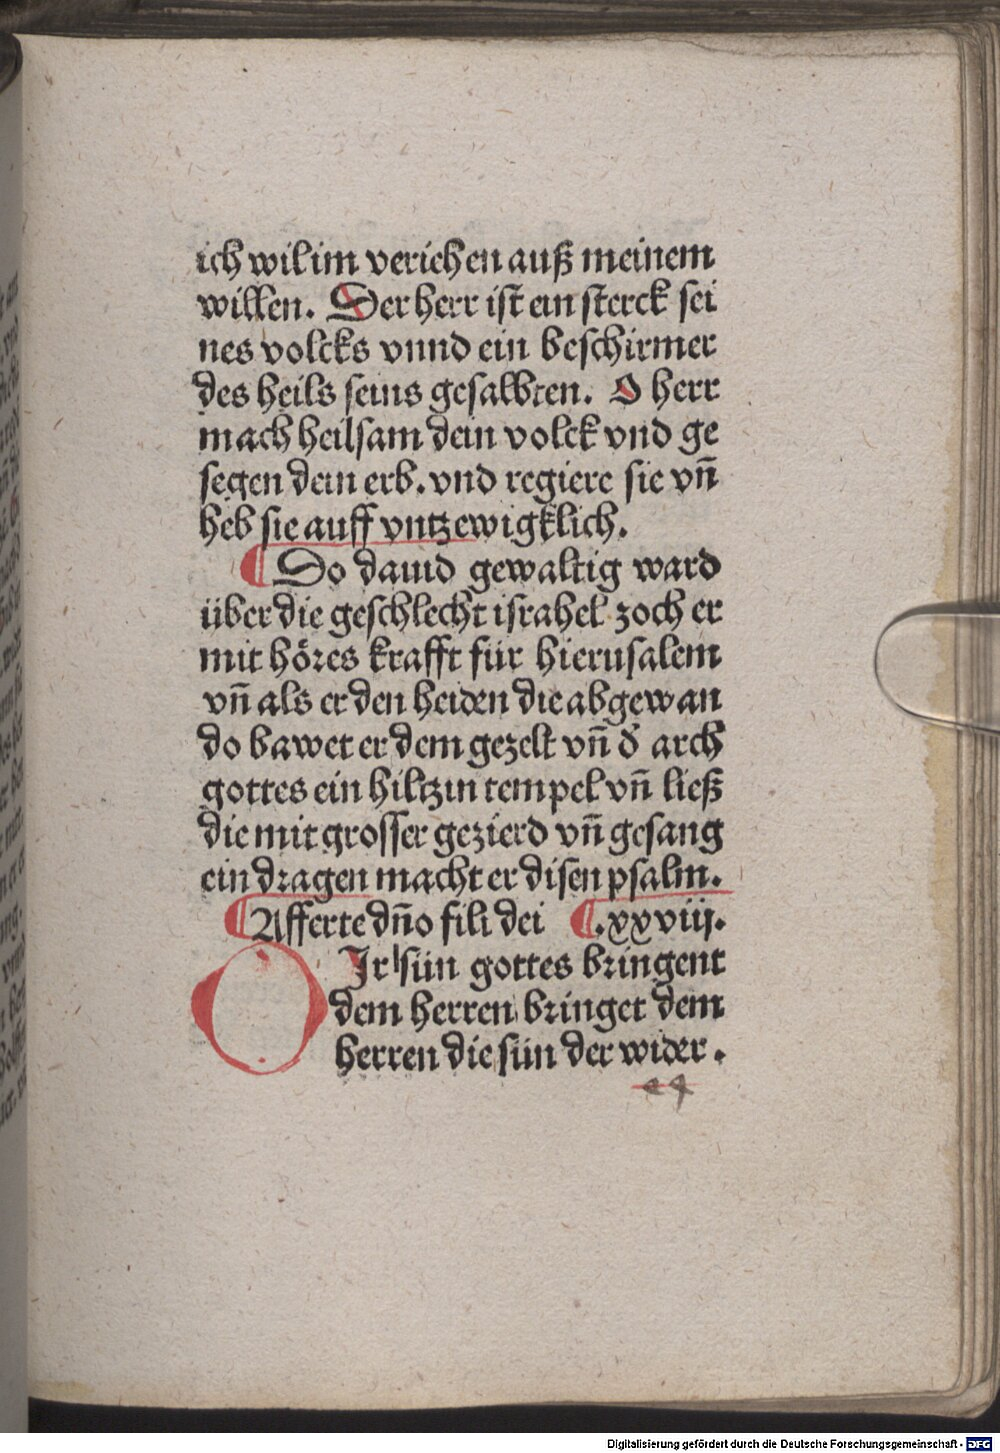 ich wil im veriehen auß meinem
willen. Der herr ist ein sterck sei
nes volcks vnnd ein beschirmer
des heils seins gesalbten. O herr
mach heilsam dein volck vnd ge
segen dein erb. vnd regiere sie vn̄
heb sie auff vntz ewigklich.
¶ Do dauid gewaltig ward
über die geschlecht israhel zoch er
mit hőres krafft für hierusalem
vn̄ als er den heiden die abgewan
do bawet er dem gezelt vn̄ d̄ arch
gottes ein hiltzin tempel vn̄ ließ
die mit grosser gezierd vn̄ gesang
ein dragen macht er disen psalm.
¶ Afferte dn̄o fili dei ¶ .xxviij.
O Ir sün gottes bringent
dem herren bringet dem
herren die sün der wider.
Digitalisierung gefördert durch die Deutsche Forschungsgemeinschaft - DFG